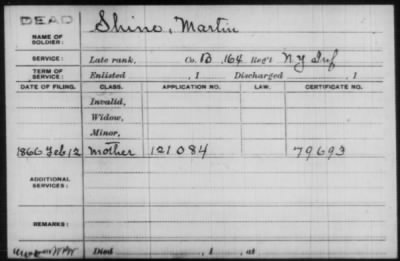 DEAD
Shine, Martin
NAME OF SOLDIER:
SERVICE: Late rank, Co. B, 164 Reg't N Y Inf
TERM OF SERVICE: Enlisted , 1 Discharged , 1
DATE OF FILING. CLASS. APPLICATION NO. LAW. CERTIFICATE NO.
Invalid,
Widow,
Minor,
1866 Feb 12 Mother 121084 79693
ADDITIONAL SERVICES:
REMARKS:
Died , 1 , at